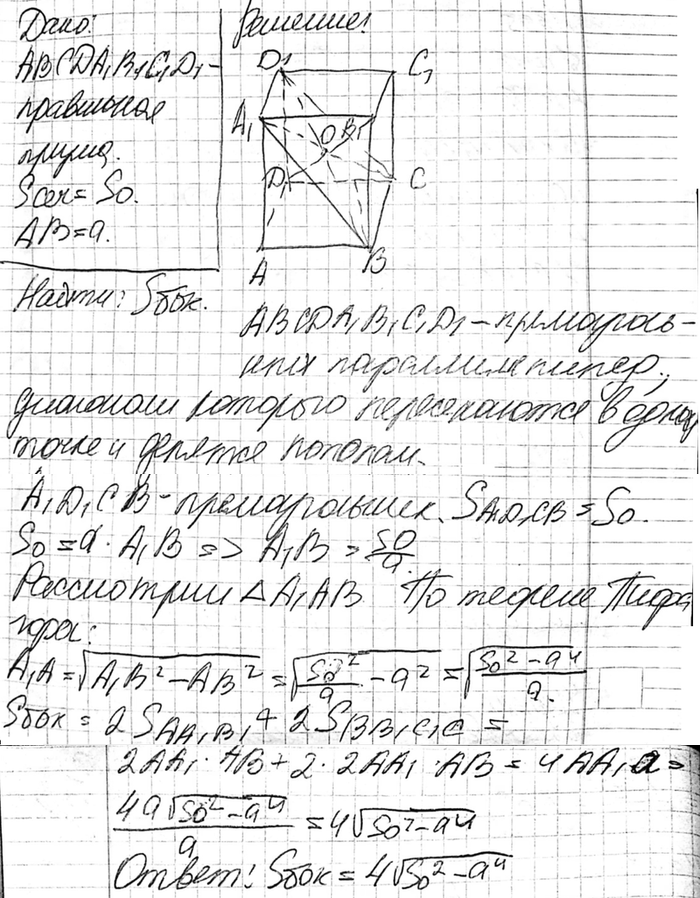 Дано:
ABCDA₁B₁C₁D₁ –
правильная
призма.
Sсеч = S₀.
AB = a.
Найти: Sбок.
Решение:
D₁ C₁
A₁ O B₁
D C
A B
ABCDA₁B₁C₁D₁ – прямоуголь-
ный параллелепипед,
диагонали которого пересекаются в одной
точке и делятся пополам.
A₁D₁CB – прямоугольник. SA₁D₁CB = S₀.
S₀ = a · A₁B => A₁B = S₀/a.
Рассмотрим △A₁AB По теореме Пифа
гора:
A₁A = √(A₁B² – AB²) = √(S₀²/a – a²) = √(S₀² – a⁴)/a.
Sбок = 2SAA₁B₁ + 2SBB₁C₁C =
2AA₁ · AB + 2 · 2AA₁ · AB = 4AA₁ a =
4a√(S₀² – a⁴)/a = 4√(S₀² – a⁴)
Ответ: Sбок = 4√(S₀² – a⁴)